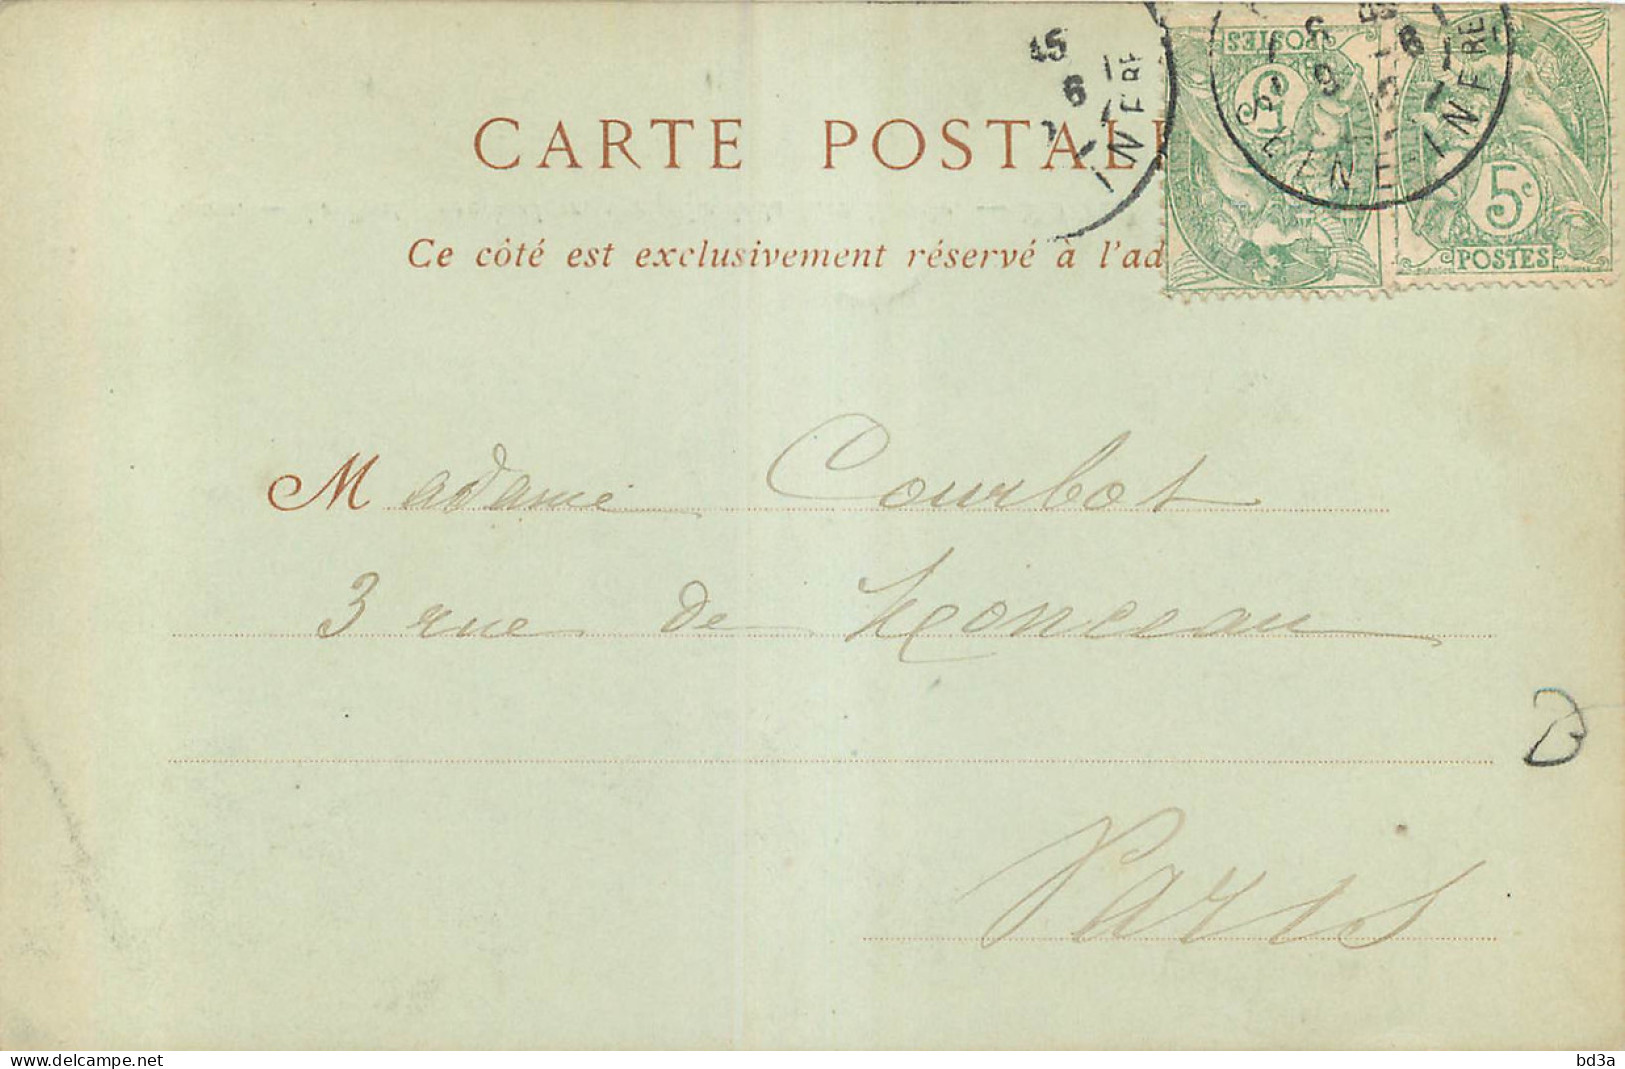 CARTE POSTAL
Ce côté est exclusivement réservé à l'ad
POSTES
5
5c
POSTES
SEINE-INFRE
INFRE
Madame Courbot
3 rue de Monceau
Paris
delcampe.net
bd3a